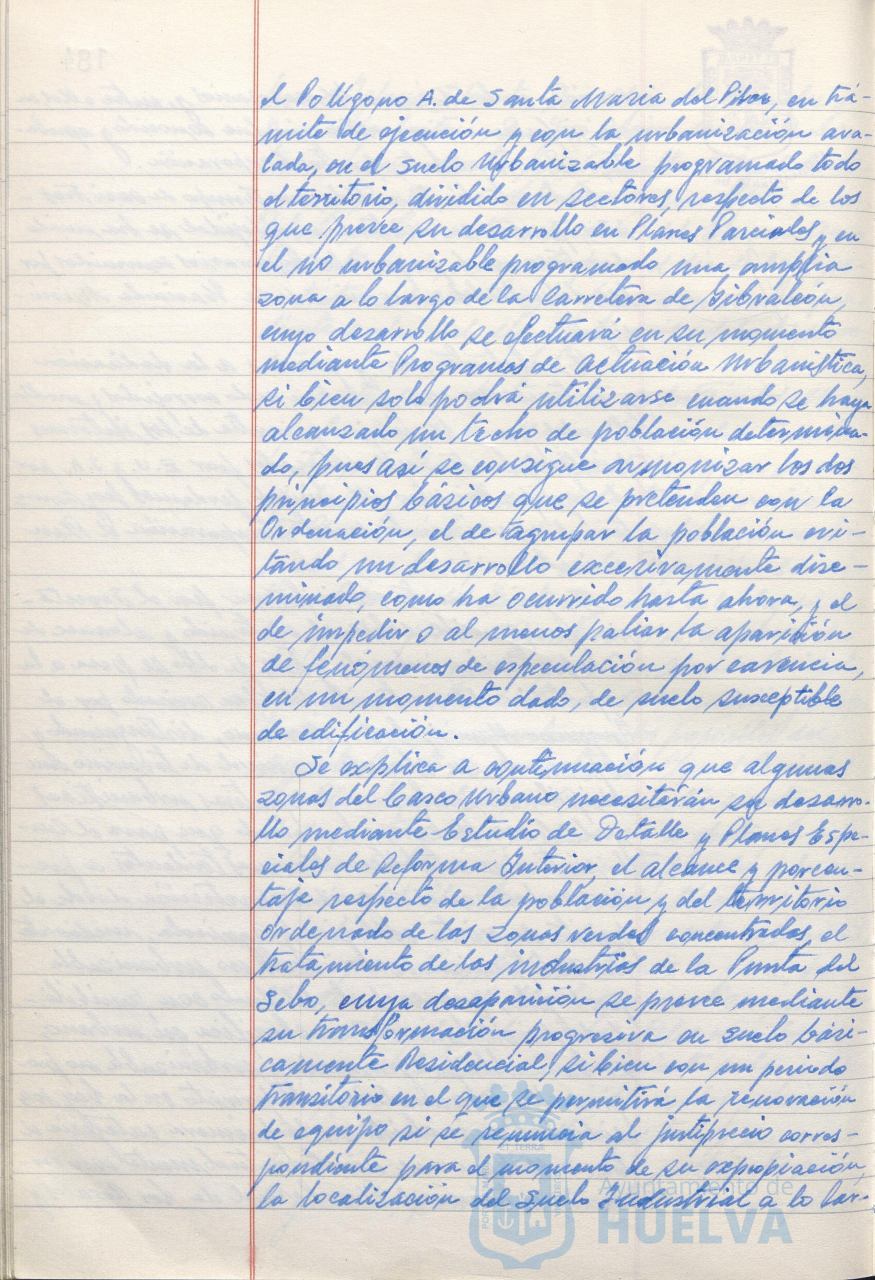 el Polígono A. de Santa María del Pilar, en trá-
mite de ejecución y con la urbanización ava-
lada, en el Suelo Urbanizable programado todo
el territorio, dividido en sectores, respecto de los
que prevee su desarrollo en Planes Parciales y en
el no urbanizable programado una amplia
zona a lo largo de la Carretera de Gibraleón,
cuyo desarrollo se efectuará en su momento
mediante Programas de Actuación Urbanística,
si bien solo podrá utilizarse cuando se haya
alcanzado un techo de población determina-
do, pues así se consigue armonizar los dos
principios básicos que se pretenden con la
Ordenación, el de agrupar la población evi-
tando un desarrollo excesivamente dise-
minado, como ha ocurrido hasta ahora, y el
de impedir o al menos paliar la aparición
de fenómenos de especulación por carencia,
en un momento dado, de suelo susceptible
de edificación.
Se explica a continuación que algunas
zonas del Casco Urbano necesitarán su desarro-
llo mediante Estudio de Detalle y Planes Espe-
ciales de Reforma Interior, el alcance y porcen-
taje respecto de la población y del territorio
ordenado de las zonas verdes concentradas, el
tratamiento de las industrias de la Punta del
Sebo, cuya desaparición se prevee mediante
su transformación progresiva en Suelo bási-
camente Residencial, si bien con un período
transitorio en el que se permitirá la renovación
de equipo si se renuncia al justiprecio corres-
pondiente para el momento de su expropiación,
la localización del Suelo Industrial a lo lar-
Ayuntamiento de
HUELVA